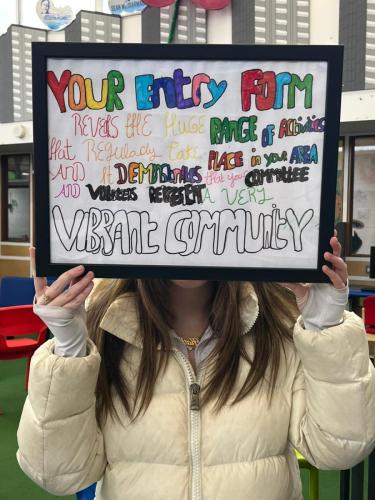 YOUR Entry FORM
REVEALS tHE HUGE RANGE of Activities
that REGUlaRly Take PLACE in your AREA
AND it DEMOnstRates that your COMMITTEE
AND VOlunteers REPRESENT A VERY
VIBRANT COMMUNITY